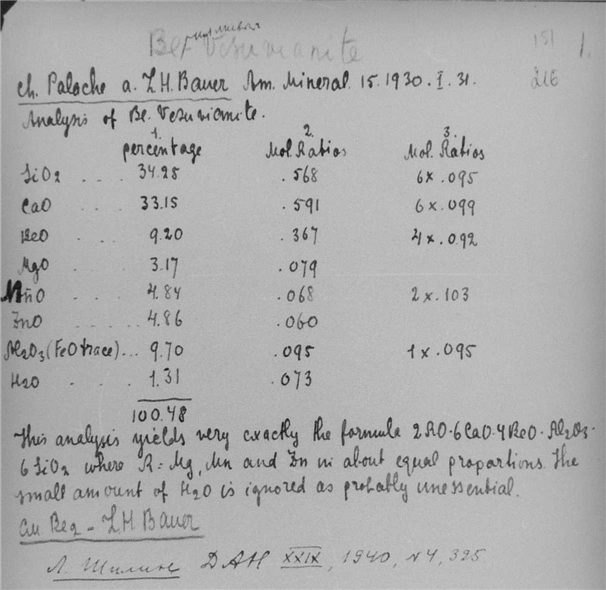 Be Vesuvianite
151 1.
216
Ch. Palache a. L H. Bauer Am. Mineral. 15. 1930. I. 31.
Analysis of Be. Vesuvianite.
1. 2. 3.
percentage Mol. Ratios Mol. Ratios
SiO2 . . . . 34.25 .568 6x .095
CaO 33.15 .591 6x .099
BeO . . . . 9.20 .367 4x .092
MgO 3.17 .079
MnO . . . . 4.84 .068 2x .103
ZnO . . . . 4.86 .060
Al2O3 (FeO trace)... 9.70 .095 1x .095
H2O . . . 1.31 .073
100.48
This analysis yields very exactly the formula 2RO·6CaO·4BeO·Al2O3·
6SiO2 where R = Mg, Mn and Zn in about equal proportions. The
small amount of H2O is ignored as probably unessential.
L H Bauer
Л. Шилин ДАН XXIX, 1940, N4, 325